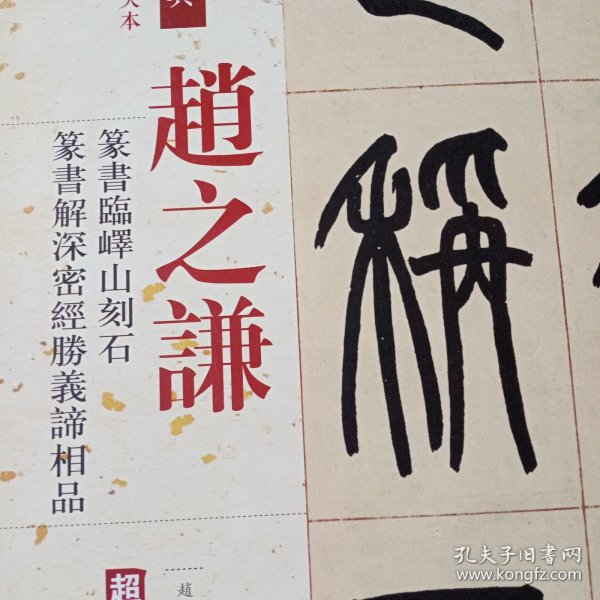 大本
趙之謙
篆書臨嶧山刻石
篆書解深密經勝義諦相品
稱
超
趙
孔夫子旧書网
www.kongfz.com